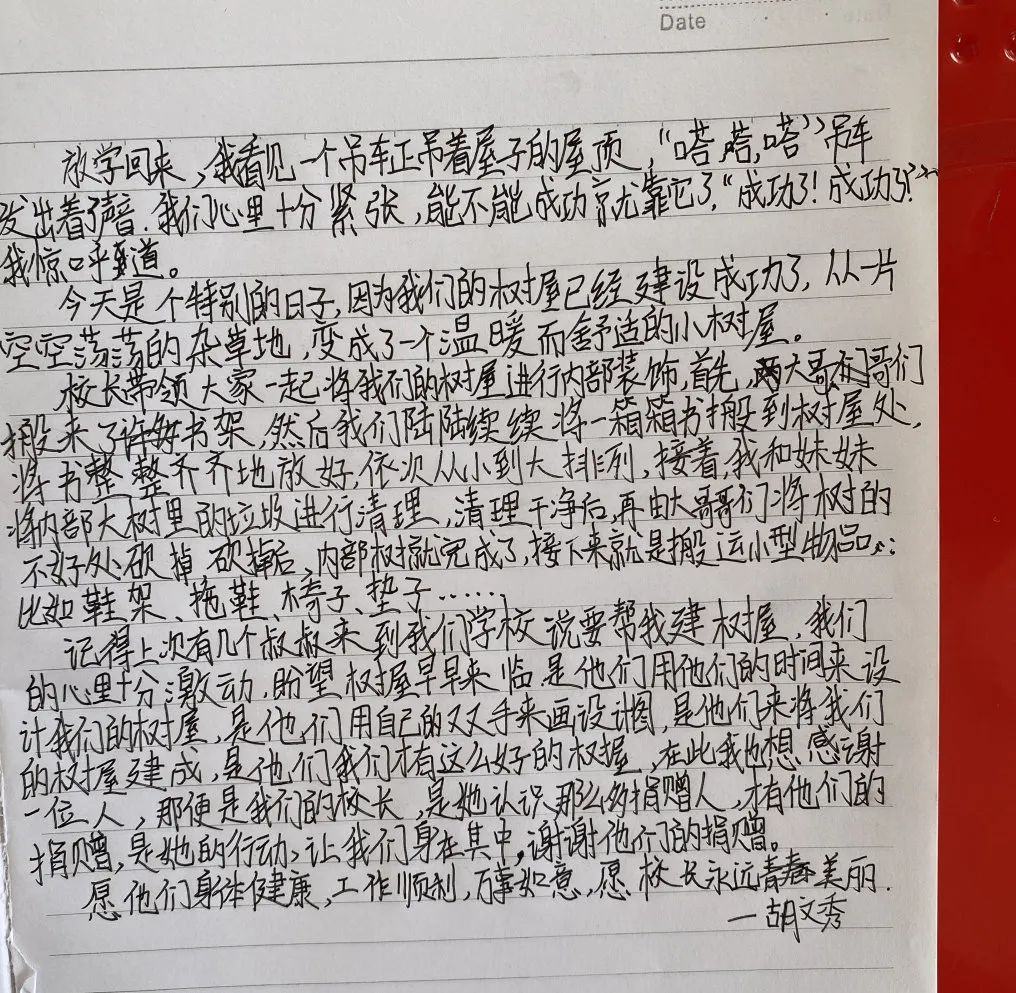 Date
放学回来，我看见一个吊车正吊着屋子的屋顶，“嗒，嗒，嗒”吊车
发出着了声音.我们心里十分紧张，能不能成功就靠它了，“成功了！成功了！”
我惊呼到道。
今天是个特别的日子，因为我们的树屋已经建设成功了，从一片
空空荡荡的杂草地，变成了一个温暖而舒适的小树屋。
校长带领大家一起将我们的树屋进行内部装饰，首先，大哥哥们
搬来了许多书架，然后我们陆陆续续将一箱箱书搬到树屋处，
将书整整齐齐地放好，依次从小到大排列，接着，我和妹妹
将内部大树里的垃圾进行清理，清理干净后，再由大哥哥们将树的
不好处砍掉，砍掉后，内部树就完成了，接下来就是搬运小型物品，：
比如鞋架、拖鞋、椅子、垫子……
记得上次有几个叔叔来到我们学校说要帮我建树屋，我们
的心里十分激动，盼望树屋早早来临，是他们用他们的时间来设
计我们的树屋，是他们用自己的双手来画设计图，是他们来将我们
的树屋建成，是他们我们才有这么好的树屋，在此我也想感谢
一位人，那便是我们的校长，是她认识那么多捐赠人，才有他们的
捐赠，是她的行动，让我们身在其中，谢谢他们的捐赠。
愿他们身体健康，工作顺利，万事如意，愿校长永远青春美丽.
—胡文秀